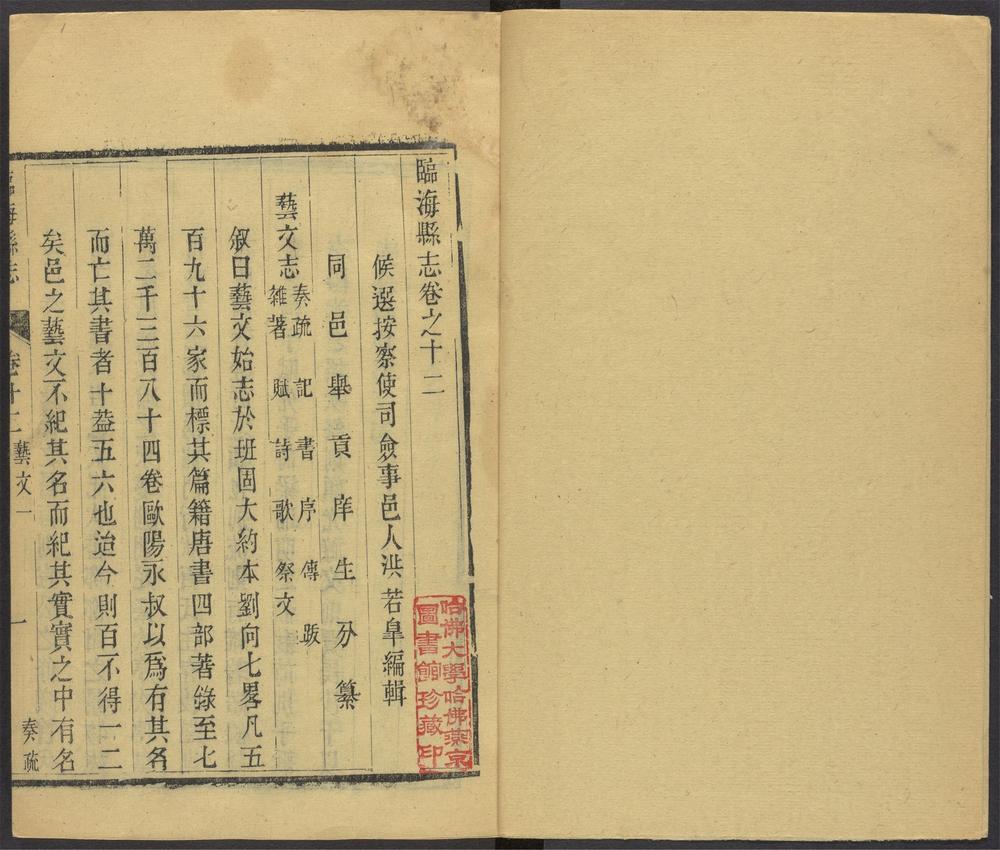 臨海縣志卷之十二
候選按察使司僉事邑人洪若臯編輯
同邑舉貢庠生分纂
藝文志 奏疏 記 書 序 傳 跋
雜著 賦 詩 歌 祭文
叙曰藝文始志於班固大約本劉向七畧凡五
百九十六家而標其篇籍唐書四部著錄至七
萬二千三百八十四卷歐陽永叔以爲有其名
而亡其書者十葢五六也迨今則百不得一二
矣邑之藝文不紀其名而紀其實實之中有名
臨海縣志 卷十二 藝文一 一 奏疏
哈佛大學哈佛燕京
圖書館珍藏印